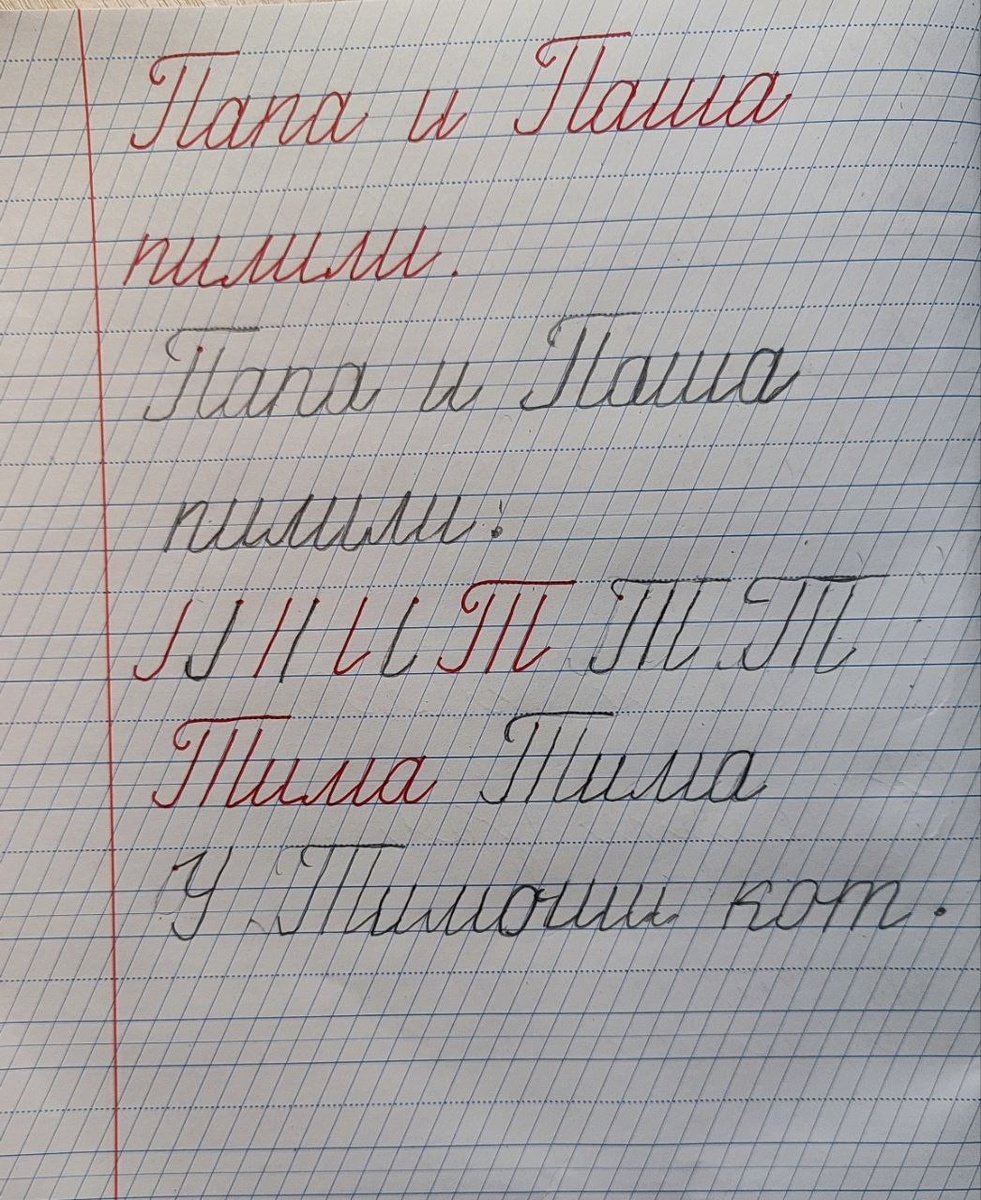 Папа и Паша
пилили.
Папа и Паша
пилили.
Т Т Т
Тима Тима
У Тимоши кот.